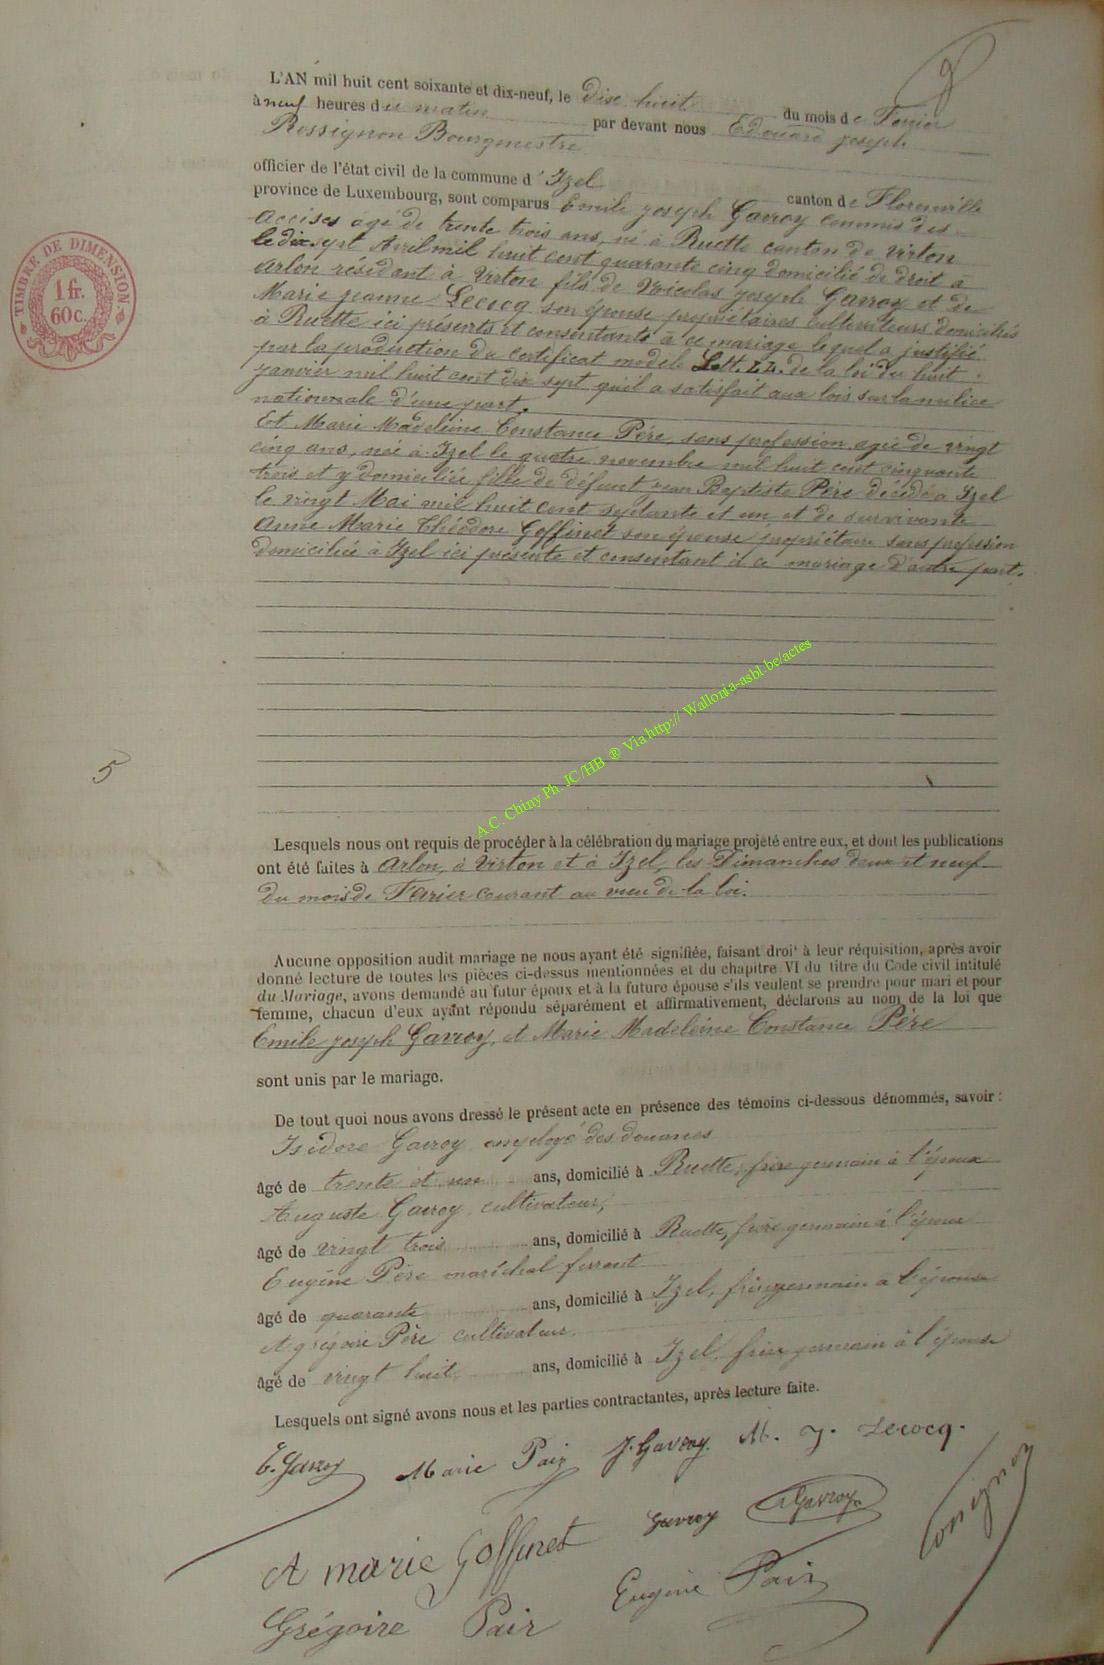 L'AN mil huit cent soixante et dix-neuf, le Dix huit du mois de
à neuf heures du matin par devant nous Edouard joseph
Rossignon Bourgmestre
officier de l'état civil de la commune d'Izel canton de Florenville
province de Luxembourg, sont comparus Emile joseph Gavroy commis des
accises âgé de trente trois ans, né à Ruette canton de Virton
le dix sept Avril mil huit cent quarante cinq domicilié de droit à
Arlon résidant à Virton fils de Nicolas joseph Gavroy et de
Marie jeanne Lecocq son épouse propriétaires cultivateurs domiciliés
à Ruette ici présents et consentants à ce mariage lequel a justifié
par la production du certificat modèle Litt. LL. de la loi du huit
janvier mil huit cent dix sept qu'il a satisfait aux lois sur la milice
nationale d'une part.
Et Marie Madeleine Constance Père, sans profession agée de vingt
cinq ans, née à Izel le quatre novembre mil huit cent cinquante
trois et y domiciliée fille de défunt jean Baptiste Père décédé à Izel
le vingt Mai mil huit cent septante et un et de survivante
Anne Marie Théodore Goffinet son épouse propriétaire sans profession
domiciliée à Izel ici présente et consentant à ce mariage d'autre part.
TIMBRE DE DIMENSION.
1 fr.
60 c.
5
A.C. Chiny Ph. JC/HB ® Via http:// Wallonia-asbl.be/actes
Lesquels nous ont requis de procéder à la célébration du mariage projeté entre eux, et dont les publications
ont été faites à Arlon, à Virton et à Izel, les Dimanches deux et neuf
du mois de courant au vœu de la loi.
Aucune opposition audit mariage ne nous ayant été signifiée, faisant droit à leur réquisition, après avoir
donné lecture de toutes les pièces ci-dessus mentionnées et du chapitre VI du titre du Code civil intitulé
du Mariage, avons demandé au futur époux et à la future épouse s'ils veulent se prendre pour mari et pour
femme, chacun d'eux ayant répondu séparément et affirmativement, déclarons au nom de la loi que
Emile joseph Gavroy, et Marie Madeleine Constance Père
sont unis par le mariage.
De tout quoi nous avons dressé le présent acte en présence des témoins ci-dessous dénommés, savoir :
Isidore Gavroy employé des douanes
âgé de trente et un ans, domicilié à Ruette, frère germain à l'époux
Auguste Gavroy, cultivateur,
âgé de vingt trois ans, domicilié à Ruette, frère germain à l'époux
Eugène Père maréchal ferrant
âgé de quarante ans, domicilié à Izel, frère germain à l'épouse
Grégoire Père cultivateur.
âgé de vingt huit ans, domicilié à Izel, frère germain à l'épouse
Lesquels ont signé avons nous et les parties contractantes, après lecture faite.
E. Gavroy Marie Pair J. Gavroy M. J. Lecocq.
A marie Goffinet Gavroy A Gavroy
Grégoire Pair Eugène Pair